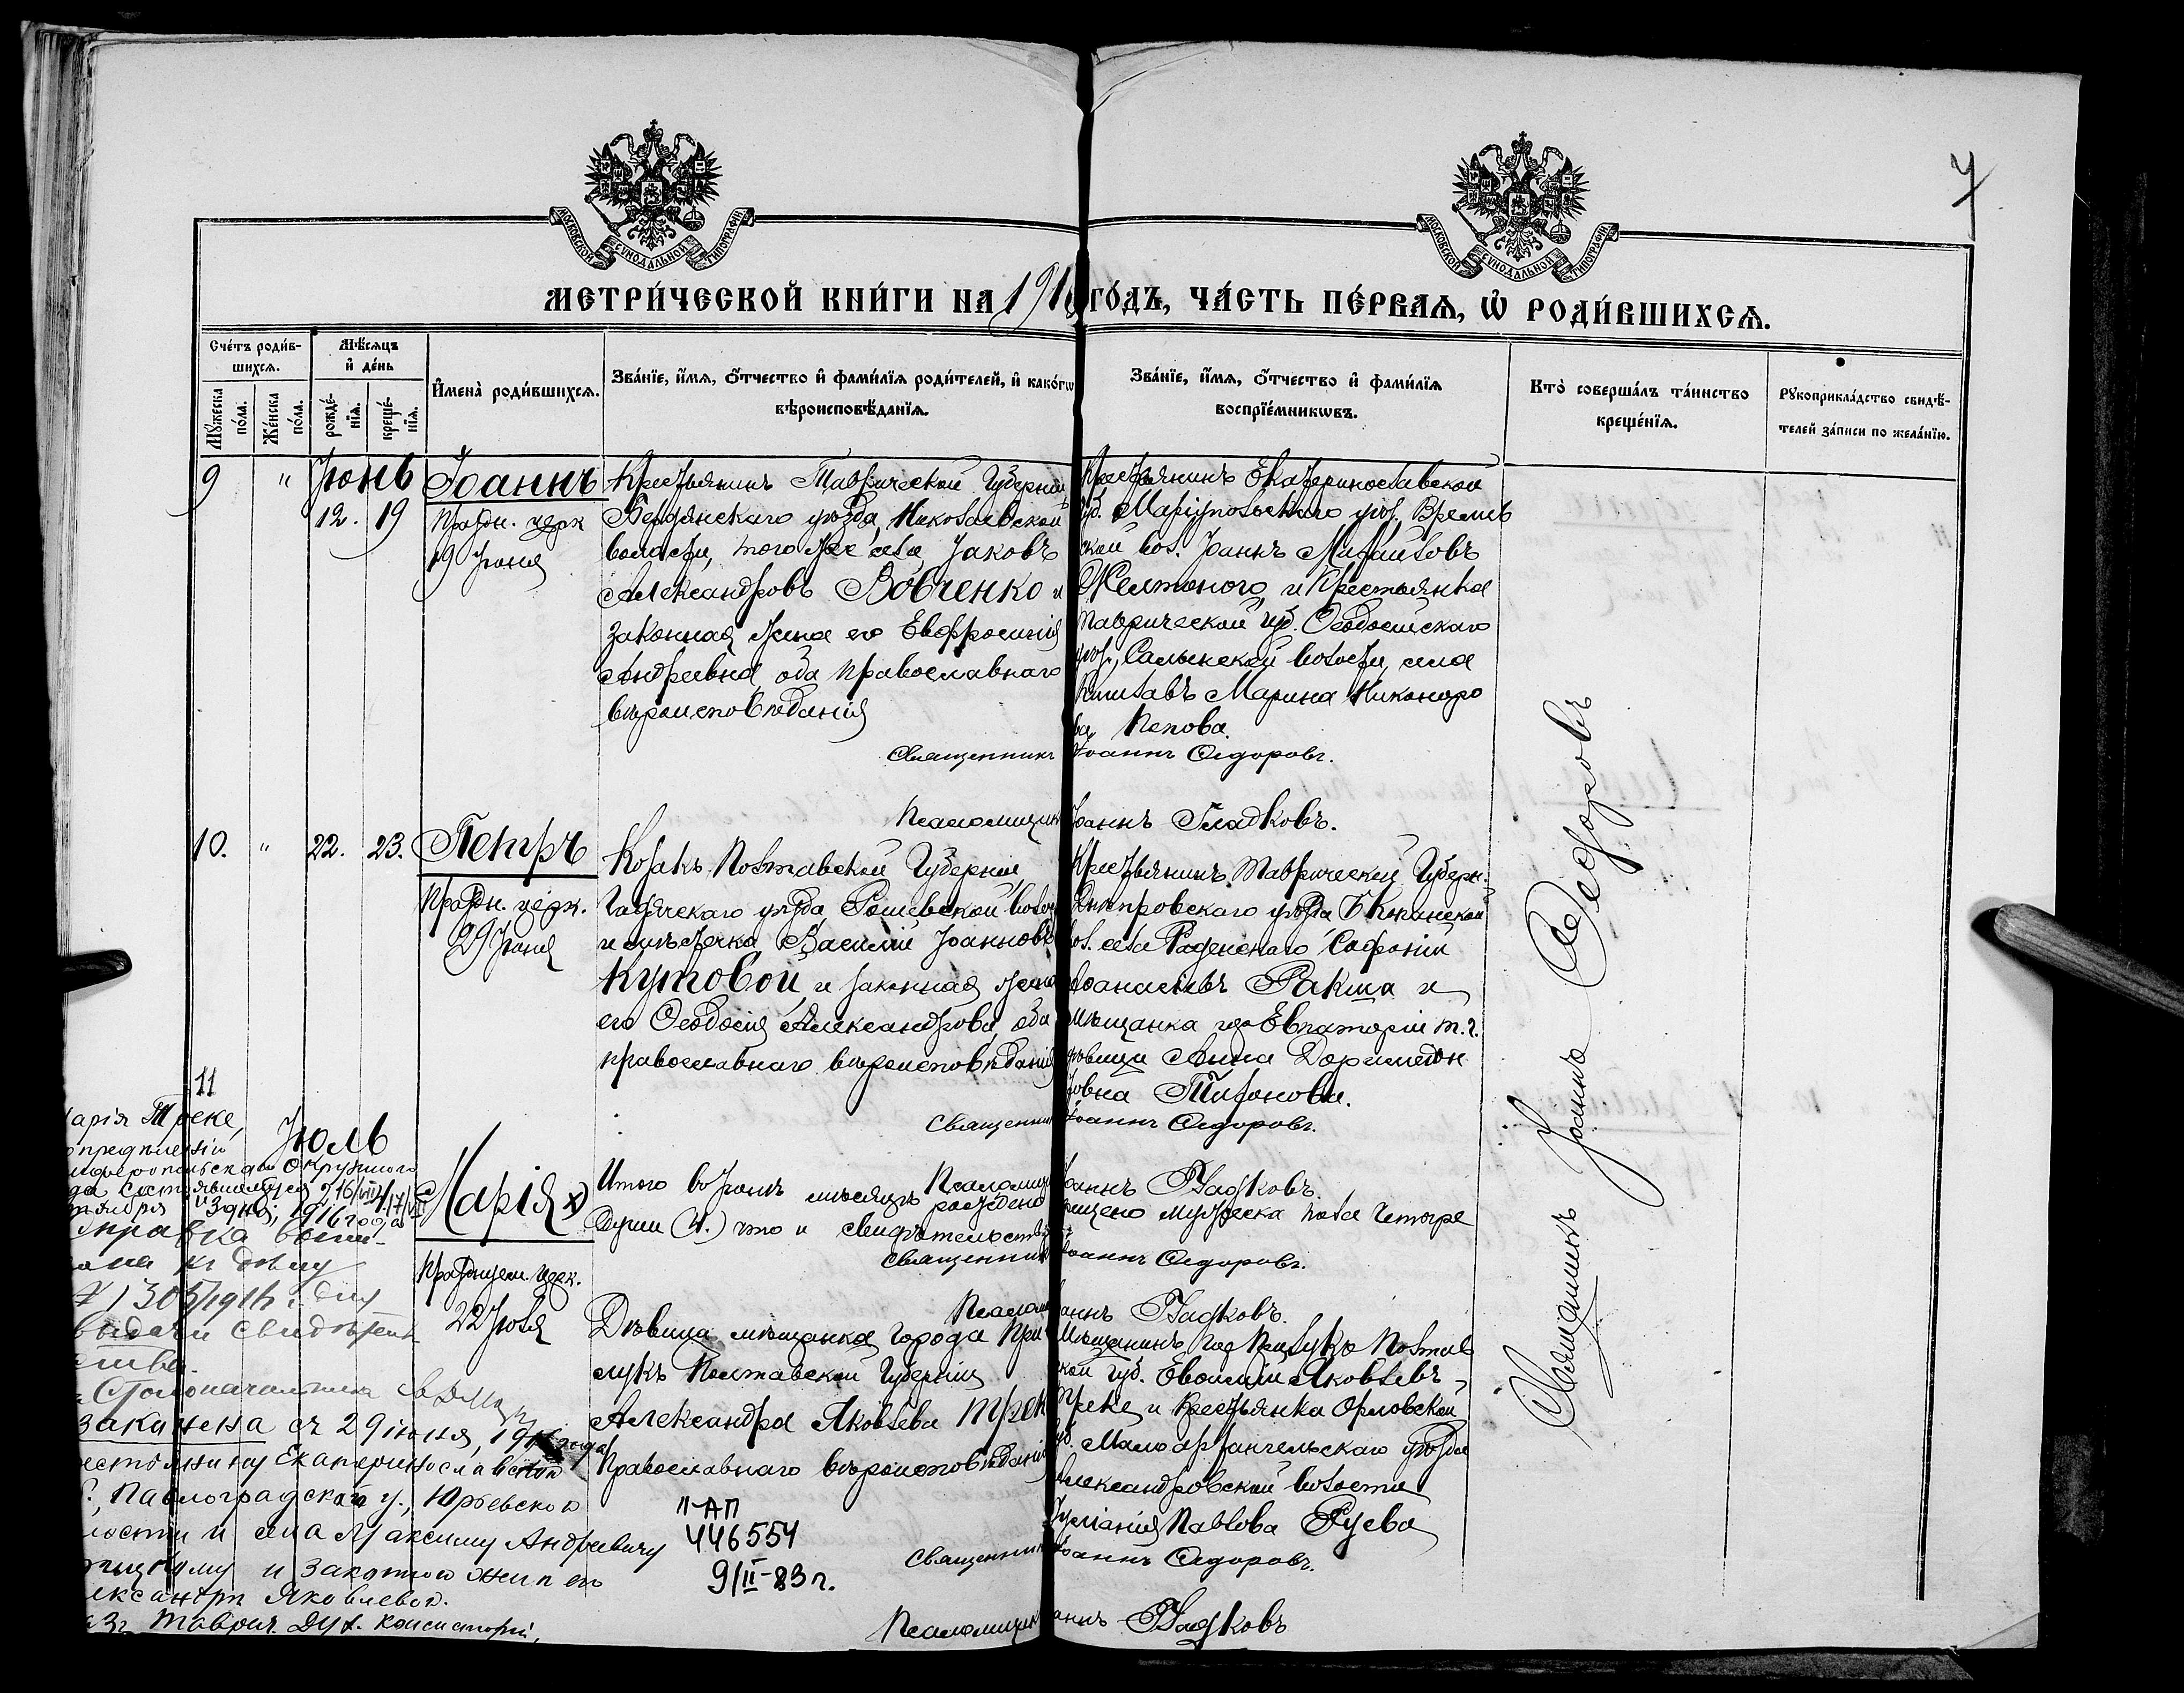 МОСКОВСКОЙ СѴНОДАЛЬНОЙ ТИПОГРАФІИ
МОСКОВСКОЙ СѴНОДАЛЬНОЙ ТИПОГРАФІИ
МЕТРИ́ЧЕСКОЙ КНИ́ГИ НА 191 ГО́ДЪ, ЧА́СТЬ ПЕ́РВАѦ, Ѡ РОДИ́ВШИХСѦ.
Сче́тъ роди́в-
шихсѧ.
Мꙋ́жеска по́ла.
Же́нска по́ла.
Мѣ́сѧцъ
и де́нь
рожде́-
нїѧ.
креще́-
нїѧ.
Имена̀ роди́вшихсѧ.
Зва́нїе, и́мѧ, о́тчество и фами́лїѧ роди́телей, и како́гѡ
вѣроисповѣ́данїѧ.
Зва́нїе, и́мѧ, о́тчество и фами́лїѧ
воспрїе́мникѡвъ.
Кто̀ соверша́лъ та́инство
креще́нїѧ.
Рꙋкоприкла́дство свидѣ́-
телей за́писи по жела́нїю.
9 " Іюнь
12. 19
Іоаннъ
Праздн. церк
19 Іюня
Крестьянинъ Таврической Губерніи
Бердянскаго уѣзда, Николаевской
волости, того же села Іаковъ
Александровъ Вовченко и
законная жена его Евфросинія
Андреевна оба православнаго
вѣроисповѣданія
Крестьянинъ Екатеринославской
губ. Маріупольскаго уѣз. Времев
ской вол. Іоаннъ Михайловъ
Желтоного и крестьянка
Таврической губ. Ѳеодосійскаго
уѣз., Салынской волости, села
Марина Никаноро
ва Попова.
Священникъ Іоаннъ Ѳедоровъ.
Псаломщикъ Іоаннъ Гладковъ.
10. " 22. 23.
Петръ
Праздн. церк.
29 Іюня
Козакъ Полтавской Губерніи,
Гадячскаго уѣзда, Рашевской волос
и мѣстечка, Василій Іоанновъ
Кутовой и законная жена
его Ѳеодосія Александрова, оба
православнаго вѣроисповѣданія
Крестьянинъ Таврической Губерн.
Днѣпровскаго уѣзда Б Копанской
вол. села Раденскаго Софоній
Аѳанасіевъ Ракша и
мѣщанка гор Евпаторіи т. г.
дѣвица Анна Доримедон
това Тихонова.
Священникъ Іоаннъ Ѳедоровъ.
Псаломщикъ Іоаннъ Гладковъ.
Итого въ Іюнѣ мѣсяцѣ рождено крещено мужеска пола четыре
Души (4.) что и свидѣтельств
Священникъ Іоаннъ Ѳедоровъ.
Псаломщ Іоаннъ Гладковъ.
11
Іюль
Марія х)
Праздуем. церк.
22 Іюля
Дѣвица мѣщанка города При
лукъ Полтавской Губерніи
Александра Яковлева Треке
Православнаго вѣроисповѣданія
Мѣщанинъ гор Прилукъ Полтав
ской губ. Евѳимій Яковлевъ
Треке и крестьянка Орловской
губ. Мало архангельскаго уѣзда
Александровской волости
Іуліанія Павлова Руева
Священникъ Іоаннъ Ѳедоровъ.
Псаломщикъ Іоаннъ Гладковъ
Священникъ Іоаннъ Ѳедоровъ
арія Треке,
Окружного
1916 года
правка
къ дѣлу
1305/1916 г. для
выдачи свидѣтель
ства.
Столоначальникъ
закинена съ 29 іюня, 19 года
естьянину Екатеринославской
Павлоградскаго у., Юрьевской
лости и села Максиму Андреевичу
и законной женѣ его
лександрѣ Яковлевой.
Таврич. Дух. Консисторіи,
II-АП
446554
9/II-83 г.